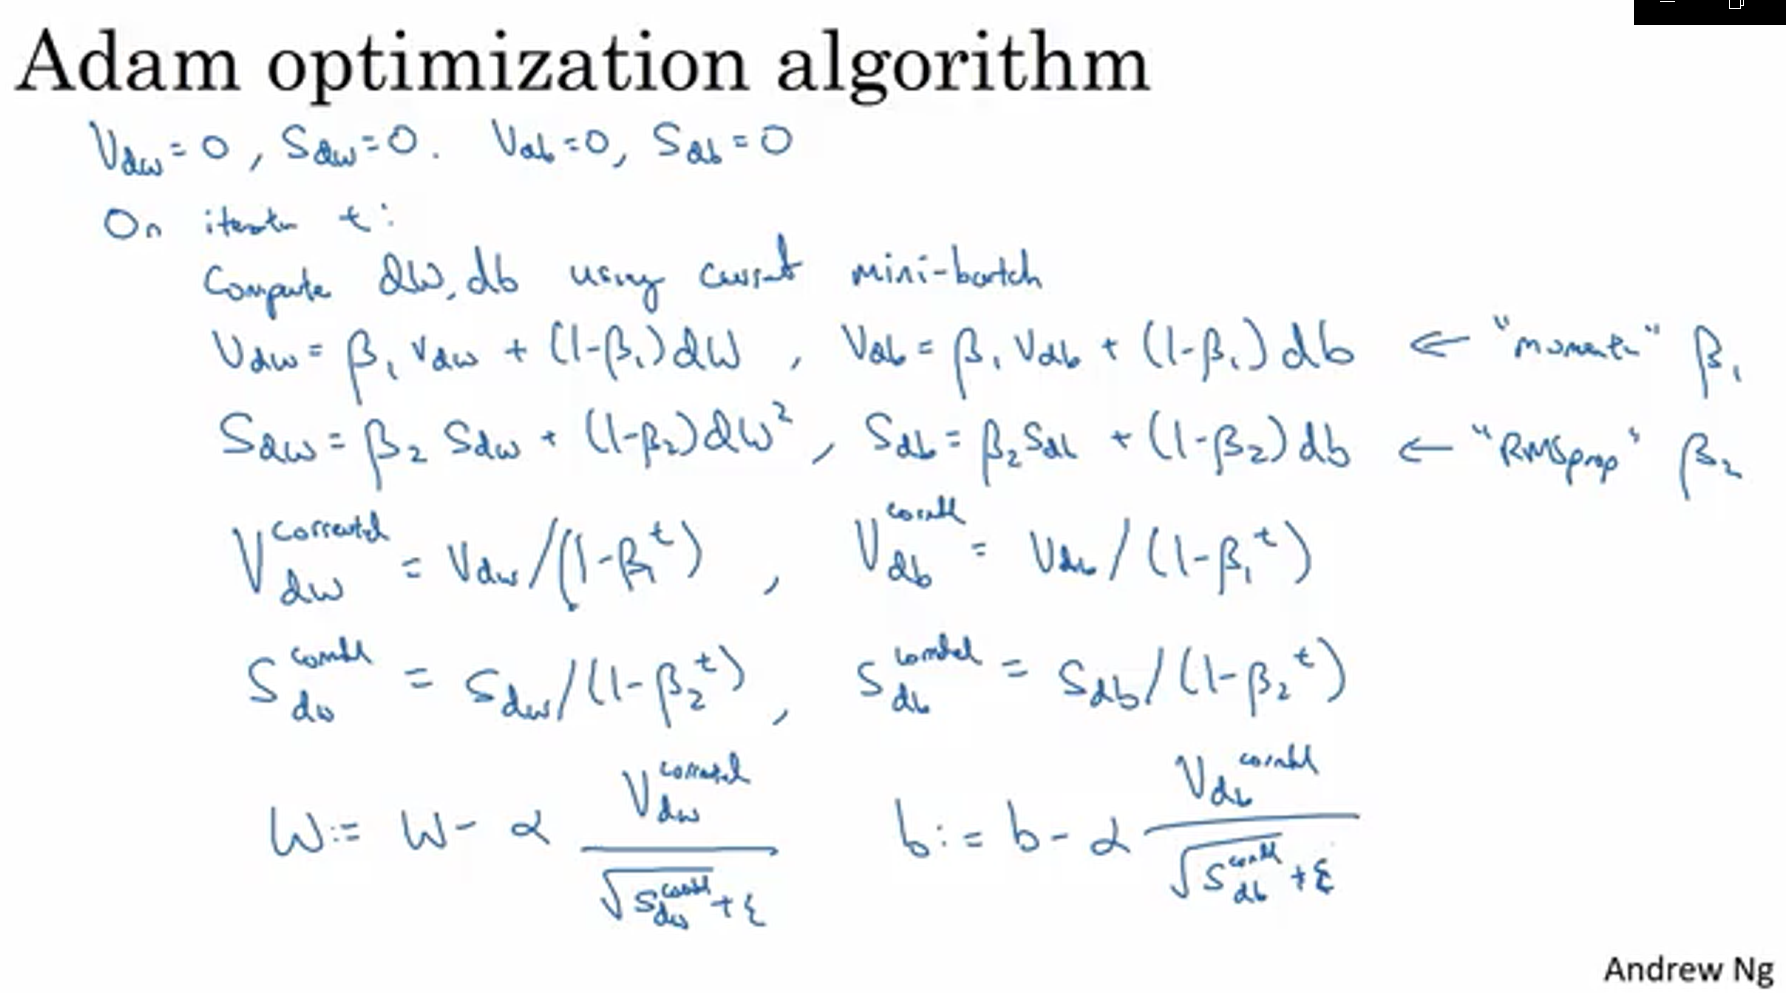 Adam optimization algorithm
V_dw = 0, S_dw = 0. V_db = 0, S_db = 0
On t:
Compute dW, db using current mini-batch
V_dw = β_1 V_dw + (1-β_1) dW , V_db = β_1 V_db + (1-β_1) db ← "moment" β_1
S_dw = β_2 S_dw + (1-β_2) dW² , S_db = β_2 S_db + (1-β_2) db ← "RMSprop" β_2
V_dw^corrected = V_dw / (1-β_1^t) , V_db^corrected = V_db / (1-β_1^t)
S_dw^corrected = S_dw / (1-β_2^t) , S_db^corrected = S_db / (1-β_2^t)
W := W - α V_dw^corrected / (√S_dw^corrected + ε) b := b - α V_db^corrected / (√S_db^corrected + ε)
Andrew Ng